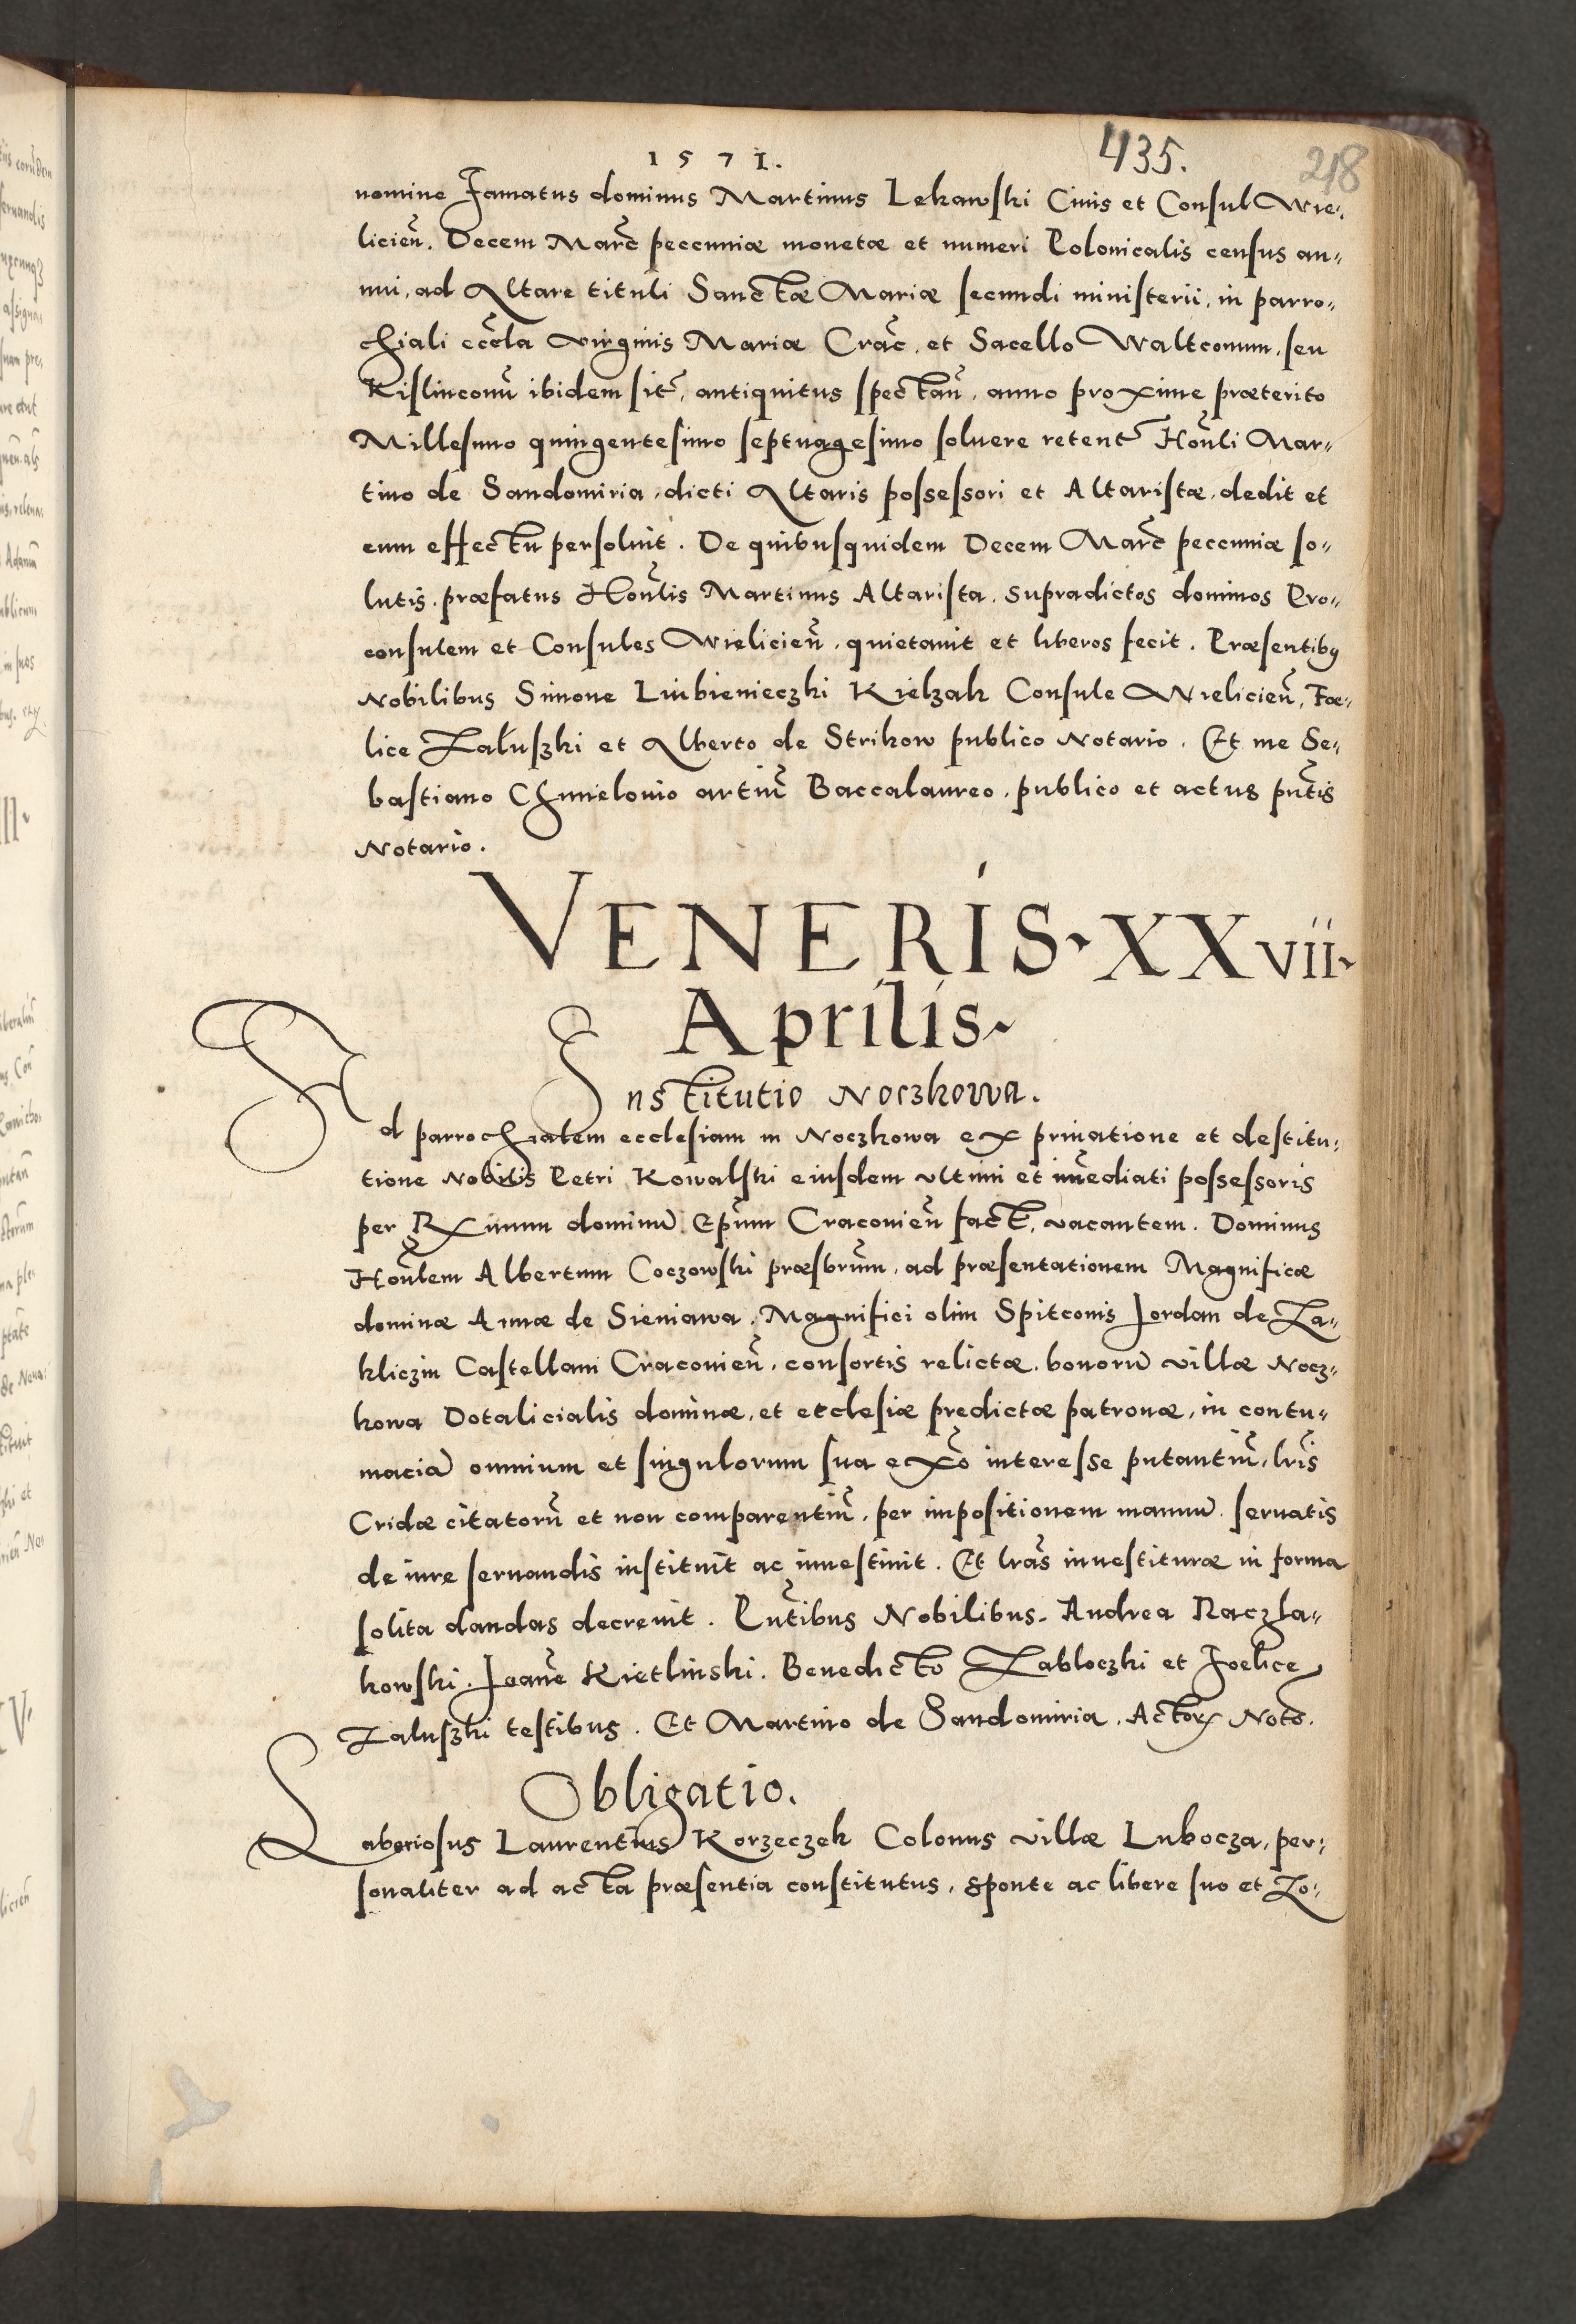 1571.
435.
218
nomine Famatus dominus Martinus Lekawski Ciuis et Consul Wie„
licień. Decem Marc̃ pecuniæ monetæ et numeri Polonicalis census an„
nui, ad Altare tituli Sanctæ Mariæ secundi ministerii, in parro„
chiali eccl̃a virginis Mariæ Crac̃, et Sacello Waltconum, seu
Kislinconũ ibidem sit̃, antiquitus spectañ, anno proxime præterito
Millesimo quingentesimo septuagesimo soluere retent̃ Honl̃i Mar„
tino de Sandomiria, dicti Altaris possessori et Altaristæ, dedit et
cum effectu persoluit. De quibusquidem Decem Marc̃ pecuniæ so„
lutis, præfatus Honl̃is Martinus Altarista, supradictos dominos Pro„
consulem et Consules Wielicień, quietauit et liberos fecit. Præsentibꝯ
Nobilibus Simone Lubienieczki Kielzak Consule Wielicień, Fœ„
lice Załuszki et Alberto de Strikow publico Notario. Et me Se„
bastiano Chmielouio artiũ Baccalaureo, publico et actus pñtis
Notario.
VENERIS XXvii
Aprilis
Institutio Noczkowa.
Ad parrochialem ecclesiam in Noczkowa ex priuatione et destitu„
tione Nobilis Petri Kowalski eiusdem vltimi et im̃ediati possessoris
per Rx̃imum dominũ Ep̃um Craconień fact̃, vacantem. Dominus
Honl̃em Albertum Coczowski præsbr̃um, ad præsentationem Magnificæ
dominæ Annæ de Sieniawa, Magnifici olim Spitconis Jordan de Za„
kliczin Castellani Craconień, consortis relictæ, bonorũ villæ Nocz„
kowa Dotalicialis dominæ, et ecclesiæ predictæ patronæ, in contu„
maciã omnium et singulorum sua ex̃o interesse putantiũ, lr̃is
Cridæ citatorũ et non comparentiũ, per impositionem manuũ, seruatis
de iure seruandis instituit ac inuestiuit. Et lr̃as inuestituræ in forma
solita dandas decreuit. Pñtibus Nobilibus Andrea Raczła„
kowski, Joañe Kietlinski, Benedicto Zabloczki et Foelice
Zaluszki testibus. Et Martino de Sandomiria, Actorꝝ Notõ.
Obligatio.
Laboriosus Laurentius Korzeczek Colonus villæ Lubocza, per„
sonaliter ad acta præsentia constitutus, sponte ac libere suo et Zo„